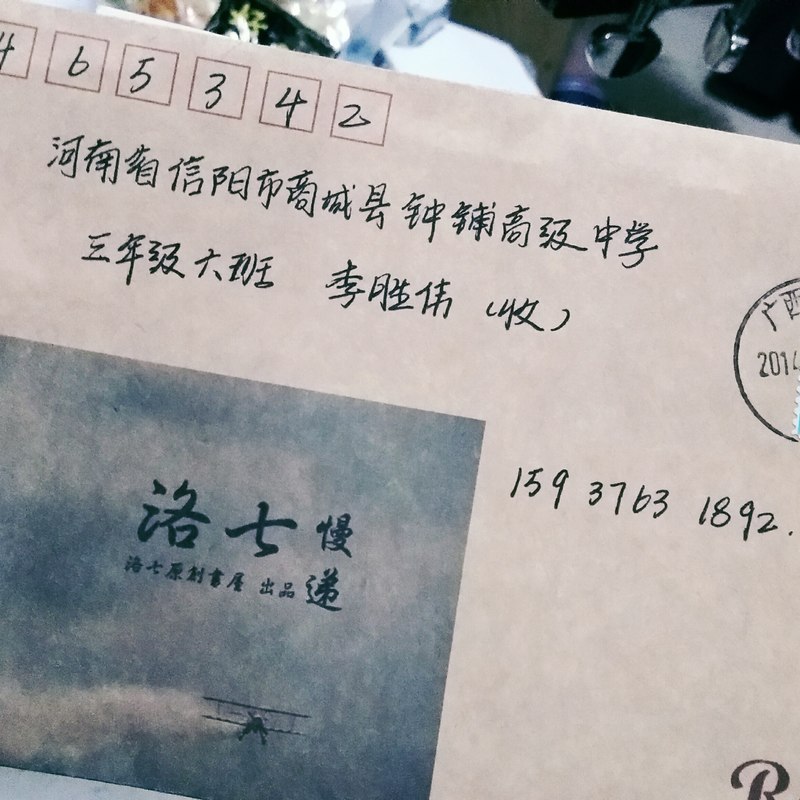 465342
河南省信阳市商城县钟铺高级中学
三年级六班 李胜伟（收）
广西
2014
159 3763 1892.
洛七慢递
洛七原創書屋 出品
R